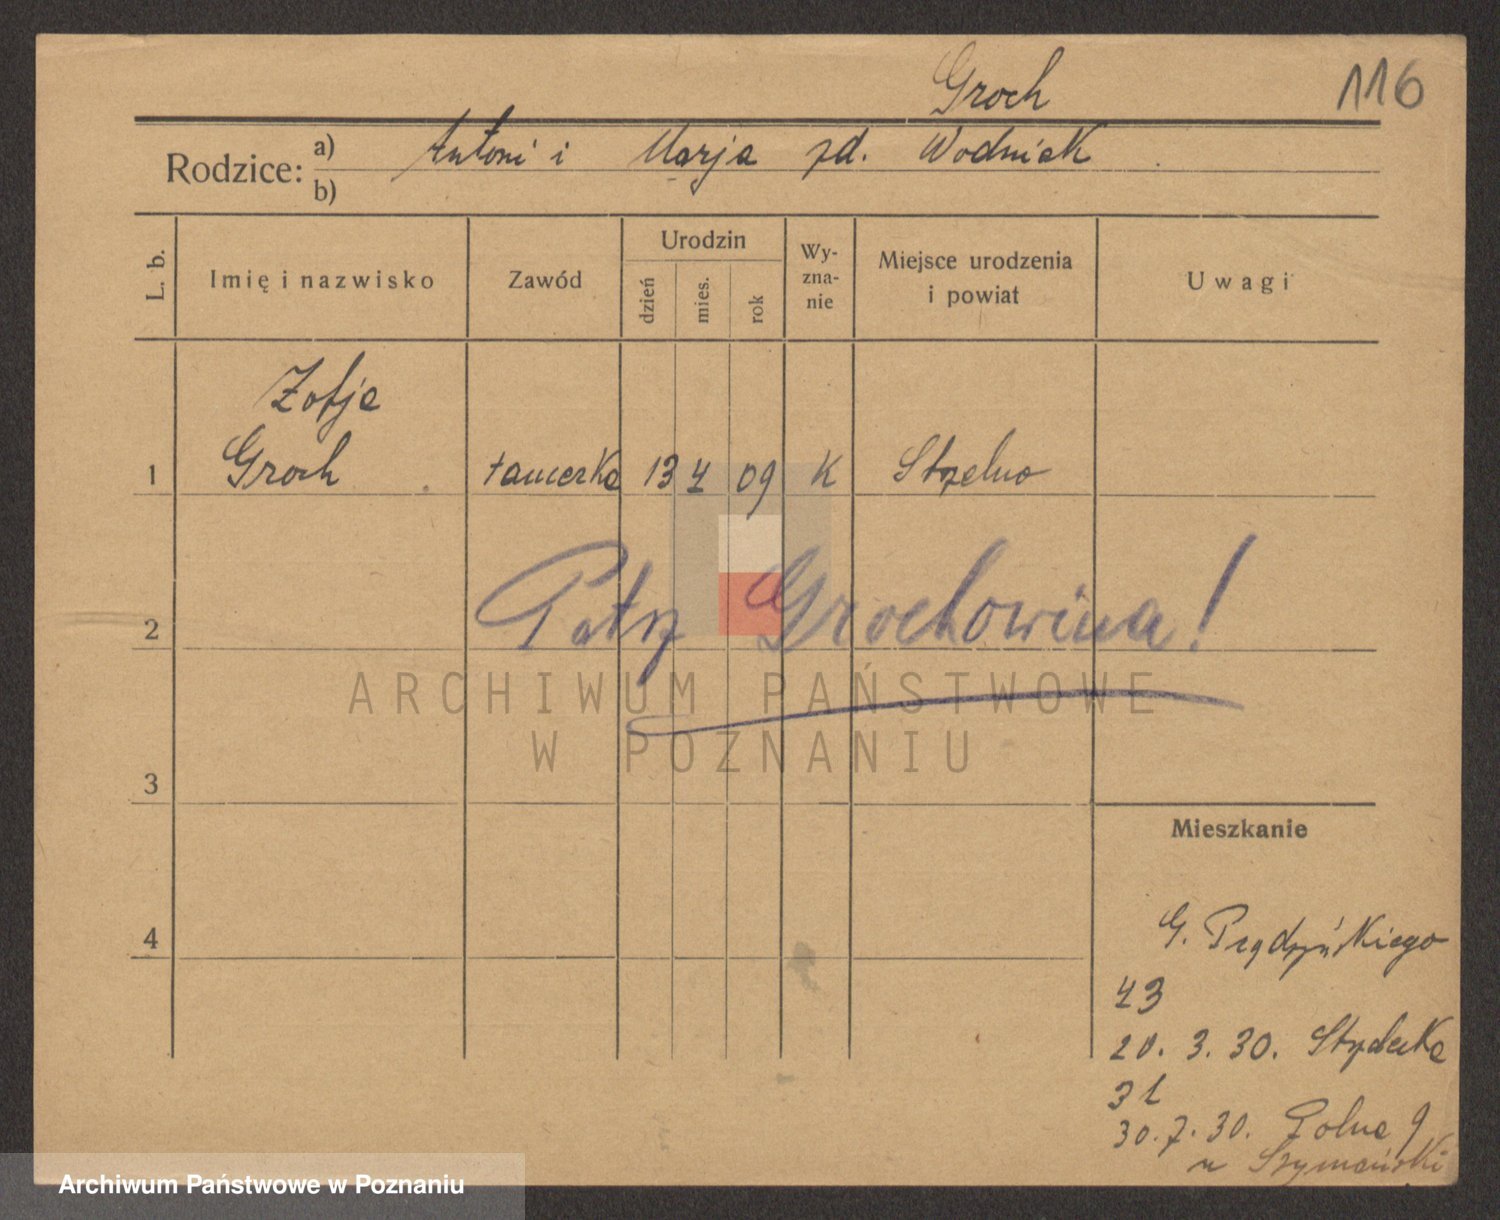 116
Groch
Rodzice: a) Antoni i Marja zd. Wodniak
b)
L. b.
Imię i nazwisko
Zawód
Urodzin
dzień
mies.
rok
Wy-
zna-
nie
Miejsce urodzenia
i powiat
Uwagi
Zofja
1 Groch tancerka 13 4 09 K Strzelno
Patrz Grochowina!
2
ARCHIWUM PAŃSTWOWE
W POZNANIU
3
Mieszkanie
4
G. Prądzyńskiego
43
20. 3. 30. Strzelecka
31
30. 7. 30. Polna 9
u Szymański
Archiwum Państwowe w Poznaniu